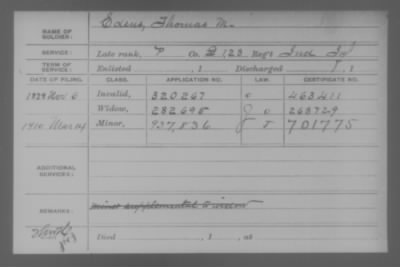 NAME OF SOLDIER: Edens, Thomas M.
SERVICE: Late rank, P Co. 123 Reg't Ind Inf
TERM OF SERVICE: Enlisted , 1 Discharged , 1
DATE OF FILING. CLASS. APPLICATION NO. LAW. CERTIFICATE NO.
Nov 6 Invalid, 320267 463411
Widow, 282695 263729
1910 Mar 14 Minor, 937,836 701775
ADDITIONAL SERVICES:
REMARKS: minor supplemental to widow
Died , 1 , at